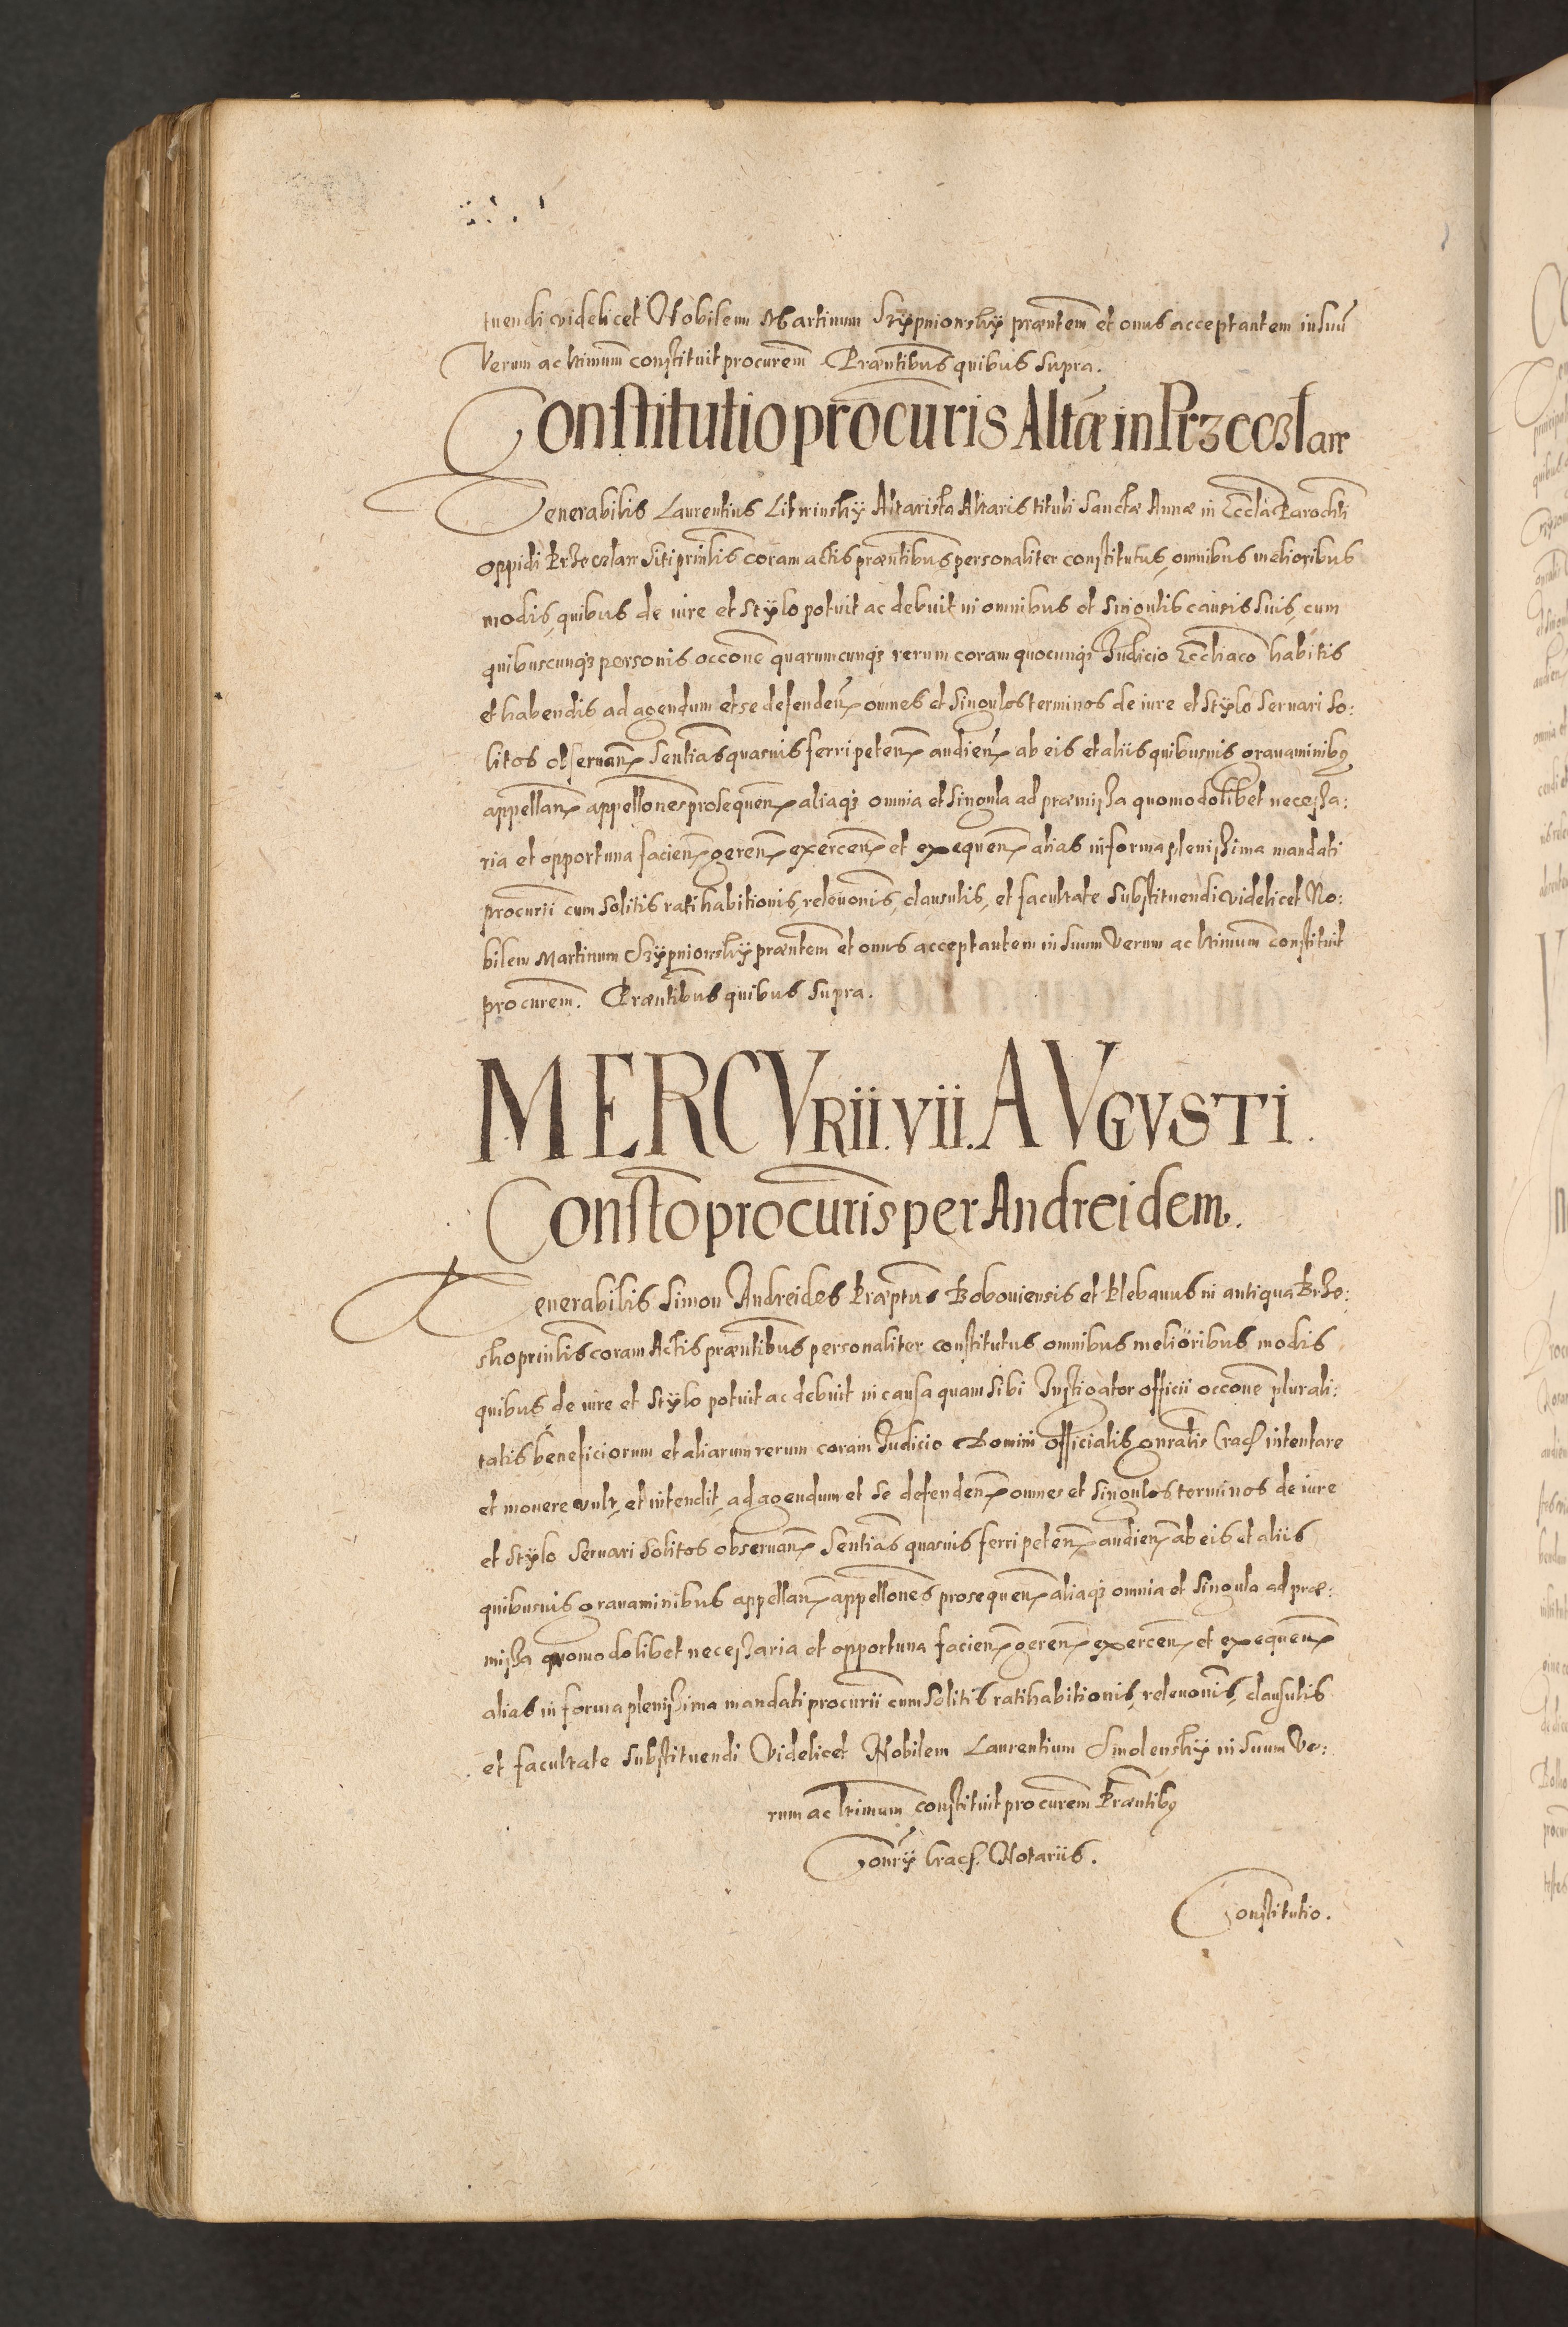 tuendi videlicet Nobilem Martinum Skrypniowsky præntem et onus acceptantem in suũ
Verum ac ltimum constituit procurem Præntibus quibus supra.
Constitutio procuris Altæ in Przeczlaw
Venerabilis Laurentius Litwinsky Altarista Altaris tituli Sanctæ Annæ in Eccla Parochli
oppidi Przeczlaw siti prinlis coram actis præntibus personaliter constitutus, omnibus melioribus
modis, quibus de iure et stylo potuit ac debuit in omnibus et singulis causis suis, cum
quibuscunqȝ personis occone quarumcunqȝ rerum coram quocunqȝ Judicio Ecclliaco habitis
et habendis ad agendum et se defenden. omnes et singulos terminos de iure et stylo servari so:
litos observan. sentias quasvis ferri peten. audien. ab eis et aliis quibusvis gravaminibȝ
appellan. appellones prosequen. aliaqȝ omnia et singula ad præmissa quomodolibet necessa:
ria et opportuna facien. geren. exercen. et exequen. alias in forma plenissima mandati
procurii cum solitis ratihabitionis, relevonis, clausulis, et facultate substituendi videlicet No:
bilem Martinum Skrypniowsky præntem et onus acceptantem in suum verum ac ltimum constituit
procurem. Præntibus quibus supra.
MERCVRII. VII. AVGVSTI.
Consto procuris per Andreidem.
Venerabilis Simon Andreides Præptus Boboviensis et Plebanus in antiqua Brze:
sko prinlis coram Actis præntibus personaliter constitutus omnibus melioribus modis
quibus de iure et stylo potuit ac debuit in causa quam sibi Instigator officii occone plurali:
tatis beneficiorum et aliarum rerum coram Judicio Domini officialis gnralis Crac. intentare
et movere vult, et intendit, ad agendum et se defenden. omnes et singulos terminos de iure
et stylo servari solitos observan. sentias quasvis ferri peten. audien. ab eis et aliis
quibusvis gravaminibus appellan. appellones prosequen. aliaqȝ omnia et singula ad præ:
missa quomodolibet necessaria et opportuna facien. geren. exercen. et exequen.
alias in forma plenissima mandati procurii cum solitis ratihabitionis, relevonis, clausulis
et facultate substituendi videlicet Nobilem Laurentium Smolensky in suum ve:
rum ac ltimum constituit procurem Præntibȝ
Crac. Notariis.
Constitutio.